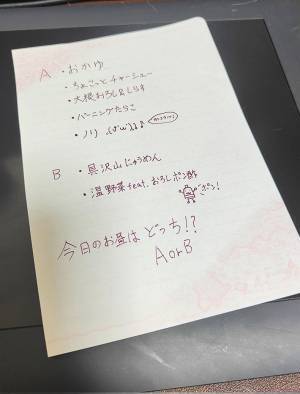 A ・おかゆ
・ちょこっとチャーシュー
・大根おろし&しらす
・バーニングたらこ
・ノリ
B ・具沢山にゅうめん
・温野菜feat.おろしポン酢
ポン!
今日のお昼は どっち!?
A or B